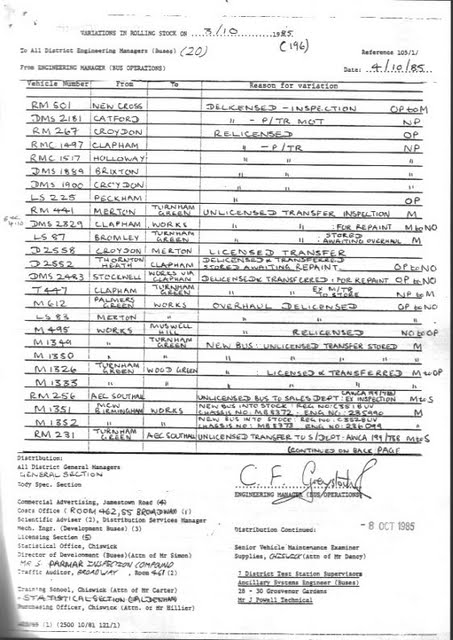 VARIATIONS IN ROLLING STOCK ON 3/10 1985.
To All District Engineering Managers (Buses) (20) (196) Reference 105/1/
From ENGINEERING MANAGER (BUS OPERATIONS) Date: 4/10/85
Vehicle Number From To Reason for variation
RM 601 NEW CROSS DELICENSED - INSPECTION OP to M
DMS 2181 CATFORD " - P/TR MOT NP
RM 267 CROYDON RELICENSED OP
RMC 1497 CLAPHAM " - P/TR NP
RMC 1517 HOLLOWAY " " "
DMS 1884 BRIXTON " " "
DMS 1900 CROYDON " " "
LS 225 PECKHAM " OP
RM 441 MERTON TURNHAM GREEN UNLICENSED TRANSFER INSPECTION M
DMS 2829 CLAPHAM WORKS " " : FOR REPAINT M to NO
LS 87 BROMLEY TURNHAM GREEN " " : STORED AWAITING OVERHAUL M
D 2558 CROYDON MERTON LICENSED TRANSFER
D 2552 THORNTON HEATH CLAPHAM DELICENSED & TRANSFERRED STORED AWAITING REPAINT. OP to NO
DMS 2483 STOCKWELL WORKS VIA CLAPHAM DELICENSED & TRANSFERRED : FOR REPAINT OP to NO
T 447 CLAPHAM TURNHAM GREEN " " EX M/TR TO STORE NP to M
M 612 PALMERS GREEN WORKS OVERHAUL DELICENSED OP to NO
LS 83 MERTON " " " "
M 495 WORKS MUSWELL HILL " RELICENSED NO to OP
M 1349 " TURNHAM GREEN NEW BUS : UNLICENSED TRANSFER STORED M
M 1350 " " " " " "
M 1326 TURNHAM GREEN WOOD GREEN " : LICENSED & TRANSFERRED M to OP
M 1333 " " " " " "
RM 256 AEC SOUTHALL UNLICENSED BUS TO SALES DEPT : EX INSPECTION M to S
M 1351 MCW BIRMINGHAM WORKS NEW BUS INTO STOCK : REG NO: C351BUV
M 1352 " " NEW BUS INTO STOCK : REG NO: C352BUV
RM 231 TURNHAM GREEN AEC SOUTHALL UNLICENSED TRANSFER TO S/DEPT - AWCA 199/788 M to S
(CONTINUED ON BACK PAGE)
Distribution:
All District General Managers
GENERAL SECTION
Body Spec. Section
ENGINEERING MANAGER (BUS OPERATIONS)
Commercial Advertising, Jamestown Road (4)
Costs Office (ROOM 462, 55 BROADWAY (1)
Scientific Adviser (2), Distribution Services Manager
Mech. Engr. (Development Buses) (3)
Licensing Section (5)
Statistical Office, Chiswick
Director of Development (Buses)(Attn of Mr Simon)
MR S. PARMAR INSPECTION COMPOUND
Traffic Auditor, BROADWAY, Room 461 (2)
Training School, Chiswick (Attn of Mr Carter)
- STATISTICAL SECTION (ALDENHAM)
Purchasing Officer, Chiswick (Attn. or Mr Hillier)
Distribution Continued: - 8 OCT 1985
Senior Vehicle Maintenance Examiner
Supplies, CHISWICK (Attn of Mr Dancy)
7 District Test Station Supervisors
Ancillary Systems Engineer (Buses)
28 - 30 Grosvenor Gardens
Mr J Powell Technical
(1) (2500 10/81 121/1)